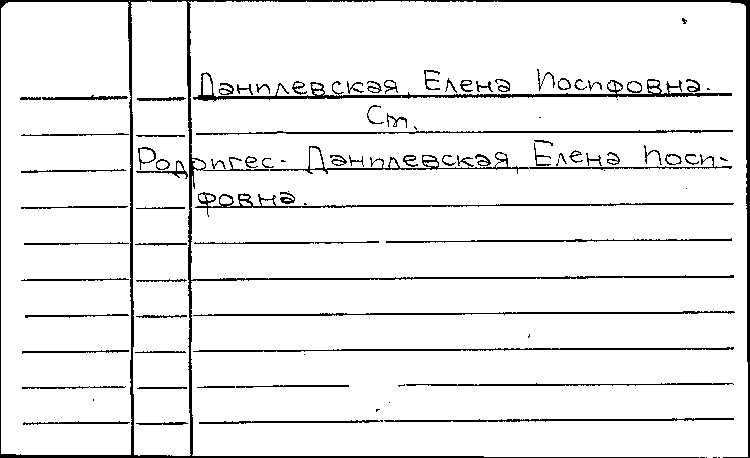 Данилевская, Елена Иосифовна.
См.
Родригес- Данилевская, Елена Иоси-
фовна.